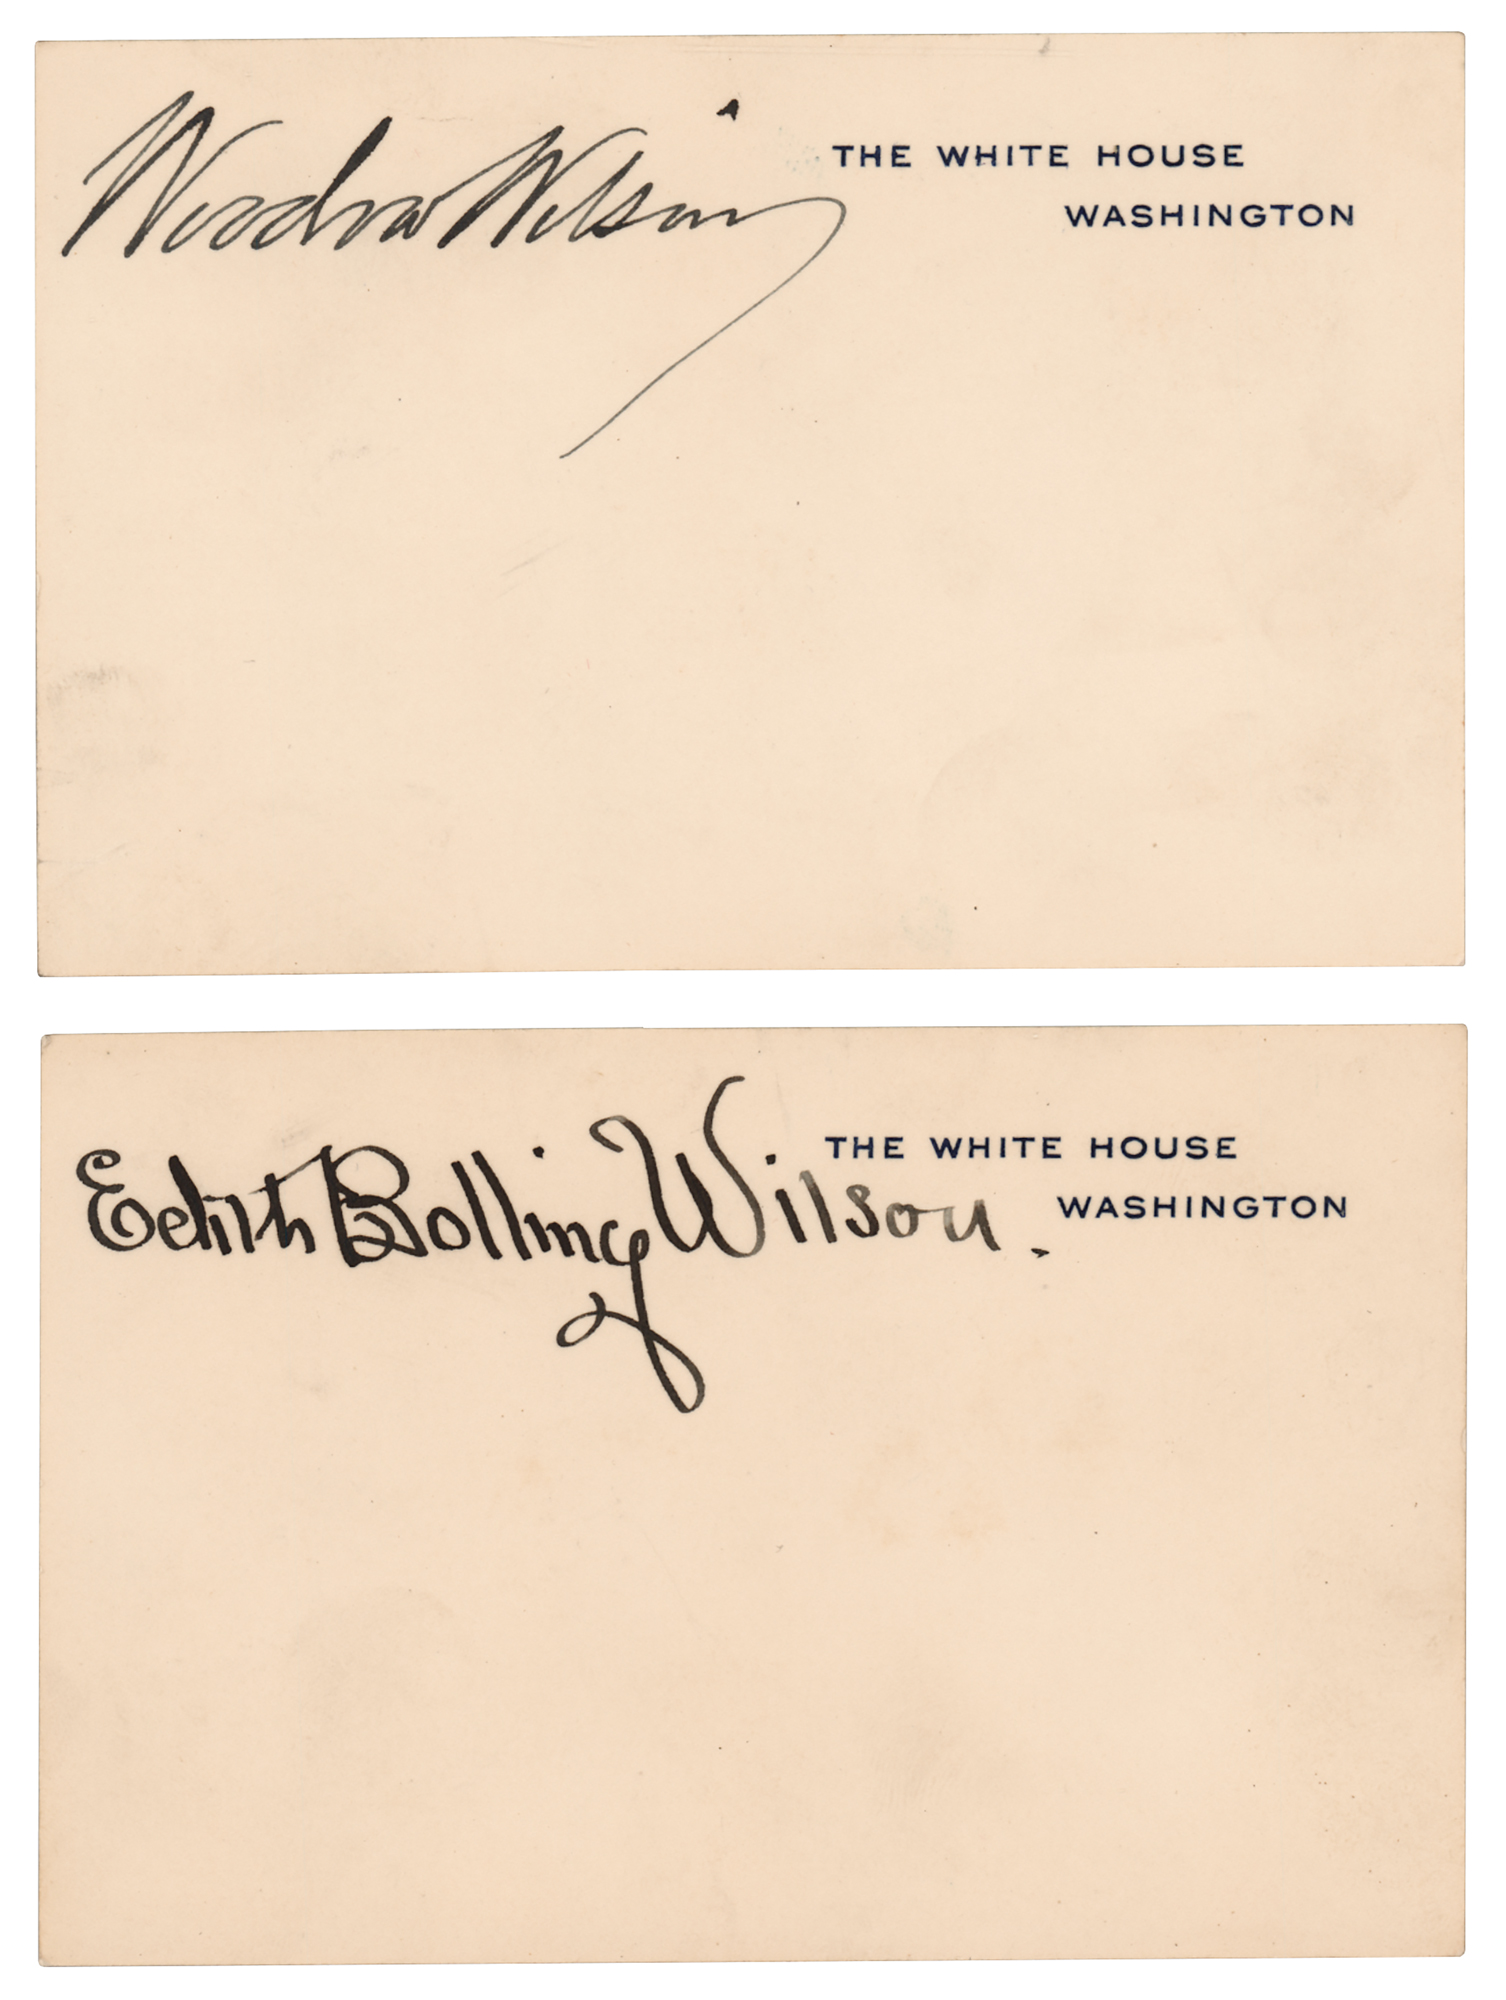 Woodrow Wilson
THE WHITE HOUSE
WASHINGTON
Edith Bolling Wilson.
THE WHITE HOUSE
WASHINGTON